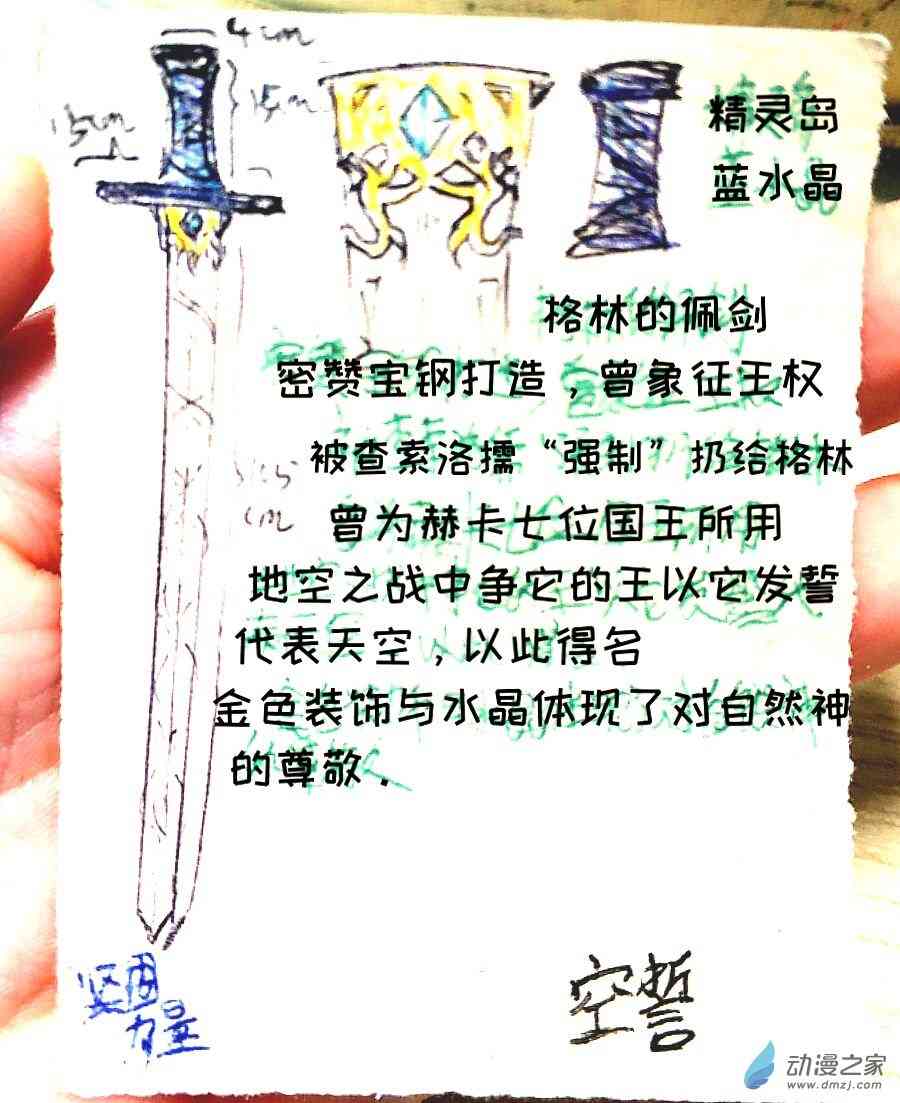 4cm
15cm
13cm
精灵岛
蓝水晶
格林的佩剑
密赞宝钢打造，曾象征王权
被查索洛擩“强制”扔给格林
曾为赫卡七位国王所用
cm
地空之战中争它的王以它发誓
代表天空，以此得名
金色装饰与水晶体现了对自然神
的尊敬．
坚固
力量
空誓
动漫之家
www.dmzj.com